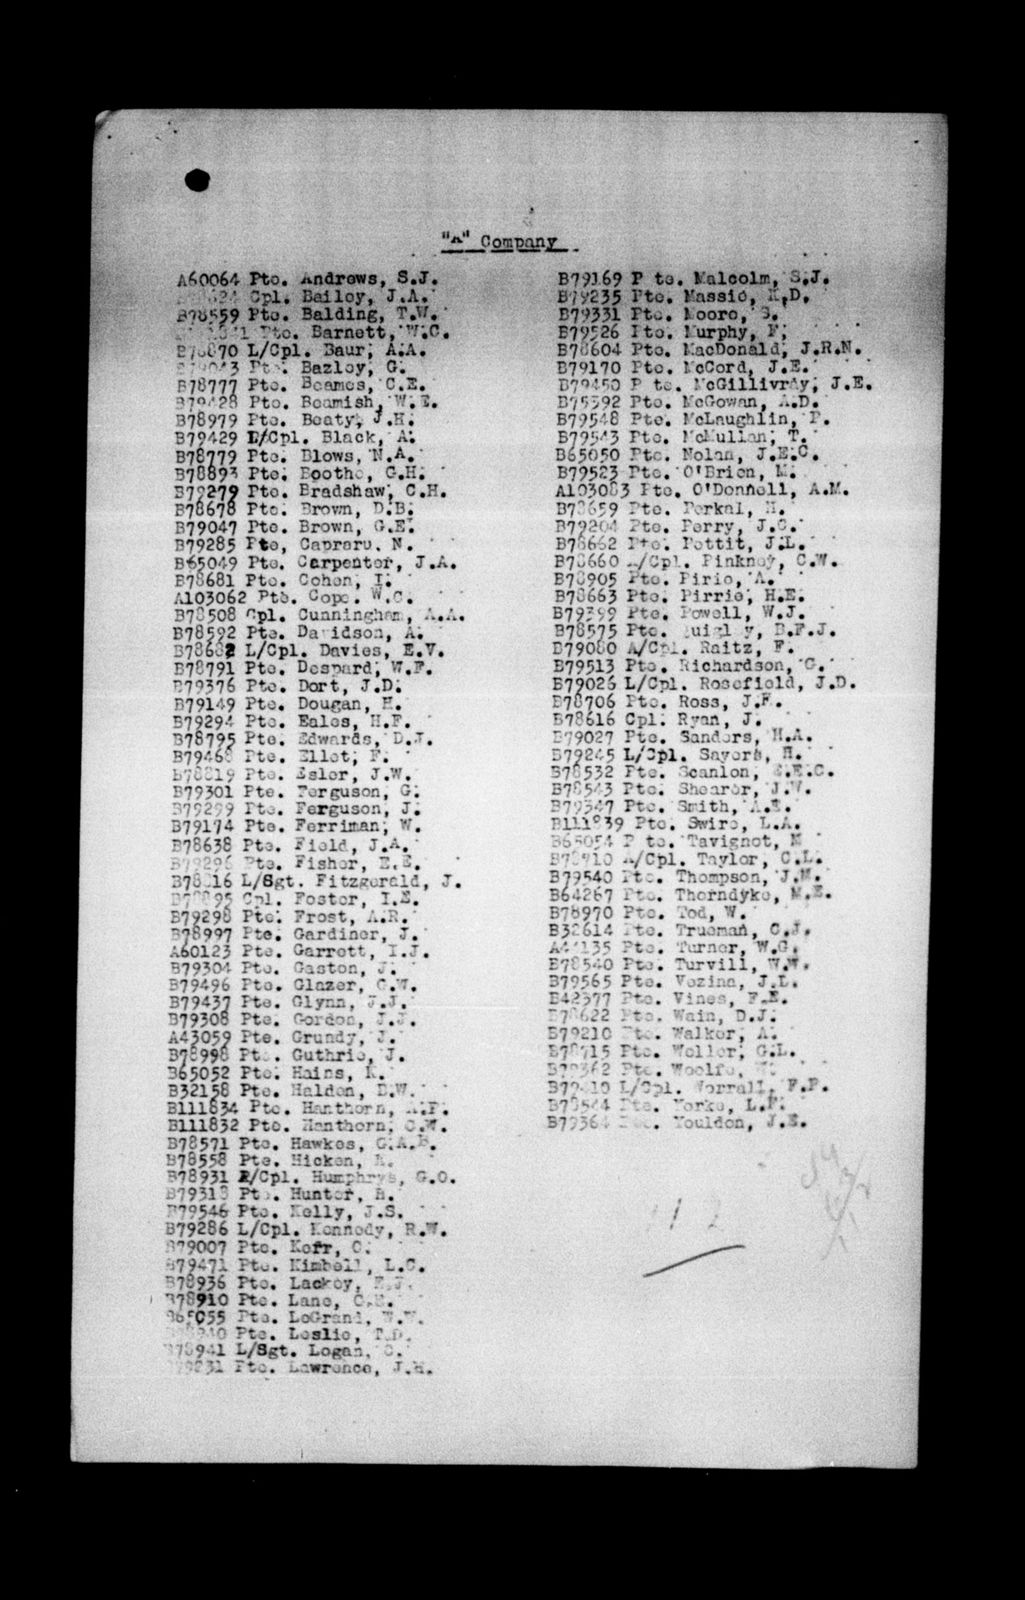 "A" Company
A60064 Pte. Andrews, S.J.
Cpl. Bailey, J.A.
B78559 Pte. Balding, T.W.
Pte. Barnett, W.C.
L/Cpl. Baur, A.A.
Pte. Bazley, G.
B78777 Pte. Beames, C.E.
B79428 Pte. Beamish, W.E.
B78979 Pte. Beaty, J.H.
B79429 L/Cpl. Black, A.
B78779 Pte. Blows, N.A.
B78893 Pte. Boothe, G.H.
B79279 Pte. Bradshaw, C.H.
B78678 Pte. Brown, D.B.
B79047 Pte. Brown, G.E.
B79285 Pte, Capraru. N.
B65049 Pte. Carpenter, J.A.
B78681 Pte. Cohen, I.
A103062 Pte. Cope. W.C.
B78508 Cpl. Cunningham, A.A.
B78592 Pte. Davidson, A.
B78682 L/Cpl. Davies, E.V.
B78791 Pte. Despard, W.F.
B79376 Pte. Dort, J.D.
B79149 Pte. Dougan, H.
B79294 Pte. Eales, H.F.
B78795 Pte. Edwards, D.J.
B79468 Pte. Ellet, F.
B78819 Pte. Esler, J.W.
B79301 Pte. Ferguson, G.
B79299 Pte. Ferguson, J.
B79174 Pte. Ferriman, W.
B78638 Pte. Field, J.A.
B79296 Pte. Fisher, E.E.
B78816 L/Sgt. Fitzgerald, J.
Cpl. Foster, I.E.
B79298 Pte. Frost, A.R.
B78997 Pte. Gardiner, J.
A60123 Pte. Garrett, I.J.
B79304 Pte. Gaston, J.
B79496 Pte. Glazer, C.W.
B79437 Pte. Glynn, J.J.
B79308 Pte. Gordon, J.J.
A43059 Pte. Grundy, J.
B78998 Pte. Guthrie, J.
B65052 Pte. Hains, K.
B32158 Pte. Halden, D.W.
B111834 Pte. Hanthorn, .F.
B111832 Pte. Hanthorn, C.W.
B78571 Pte. Hawkes, G.A.B.
B78558 Pte. Hicken,
B78931 L/Cpl. Humphrys, G.O.
B79318 Pte. Hunter, H.
B79546 Pte. Kelly, J.S.
B79286 L/Cpl. Kennedy, R.W.
B79007 Pte. Kerr, C.
B79471 Pte. Kimbell, L.C.
B78936 Pte. Lackey, E.J.
B78910 Pte. Lane, C.E.
B65055 Pte. LeGrand, W.W.
Pte. Leslie, T.D.
B78941 L/Sgt. Logan, C.
Pte. Lawrence, J.H.
B79169 P te. Malcolm, S.J.
B79235 Pte. Massie, K.D.
B79331 Pte. Moore, S.
B79526 Pte. Murphy, F.
B78604 Pte. MacDonald, J.R.N.
B79170 Pte. McCord, J.E.
B79450 P te. McGillivray, J.E.
B75592 Pte. McGowan, A.D.
B79548 Pte. McLaughlin, P.
B79543 Pte. McMullan, T.
B65050 Pte. Nolan, J.E.C.
B79523 Pte. O'Brien, M.
A103083 Pte. O'Donnell, A.M.
B78659 Pte. Perkal, H.
B79204 Pte. Perry, J.C.
B78662 Pte. Pettit, J.L.
B78660 A/Cpl. Pinkney, C.W.
B78905 Pte. Pirie, A.
B78663 Pte. Pirrie, H.E.
B79399 Pte. Powell, W.J.
B78575 Pte. Quigley, B.F.J.
B79080 A/Cpl. Raitz, F.
B79513 Pte. Richardson, G.
B79026 L/Cpl. Rosefield, J.D.
B78706 Pte. Ross, J.F.
B78616 Cpl. Ryan, J.
B79027 Pte. Sanders, H.A.
B79245 L/Cpl. Sayers, H.
B78532 Pte. Scanlon, E.E.C.
B78543 Pte. Shearer, J.W.
B79347 Pte. Smith, A.E.
B111839 Pte. Swire, L.A.
B65054 P te. Tavignot, M
B78710 A/Cpl. Taylor, C.L.
B79540 Pte. Thompson, J.M.
B64267 Pte. Thorndyke, M.E.
B78970 Pte. Tod, W.
B32614 Pte. Trueman, C.J.
A44135 Pte. Turner, W.G.
B78540 Pte. Turvill, W.W.
B79565 Pte. Vezina, J.L.
B42377 Pte. Vines, F.E.
B78622 Pte. Wain, D.J.
B79210 Pte. Walker, A.
B78715 Pte. Weller, G.L.
B79362 Pte. Woolfe,
B79410 L/Cpl. Worrall, F.P.
B78544 Pte. Yorke, L.F.
B79364 Pte. Youldon, J.E.
112